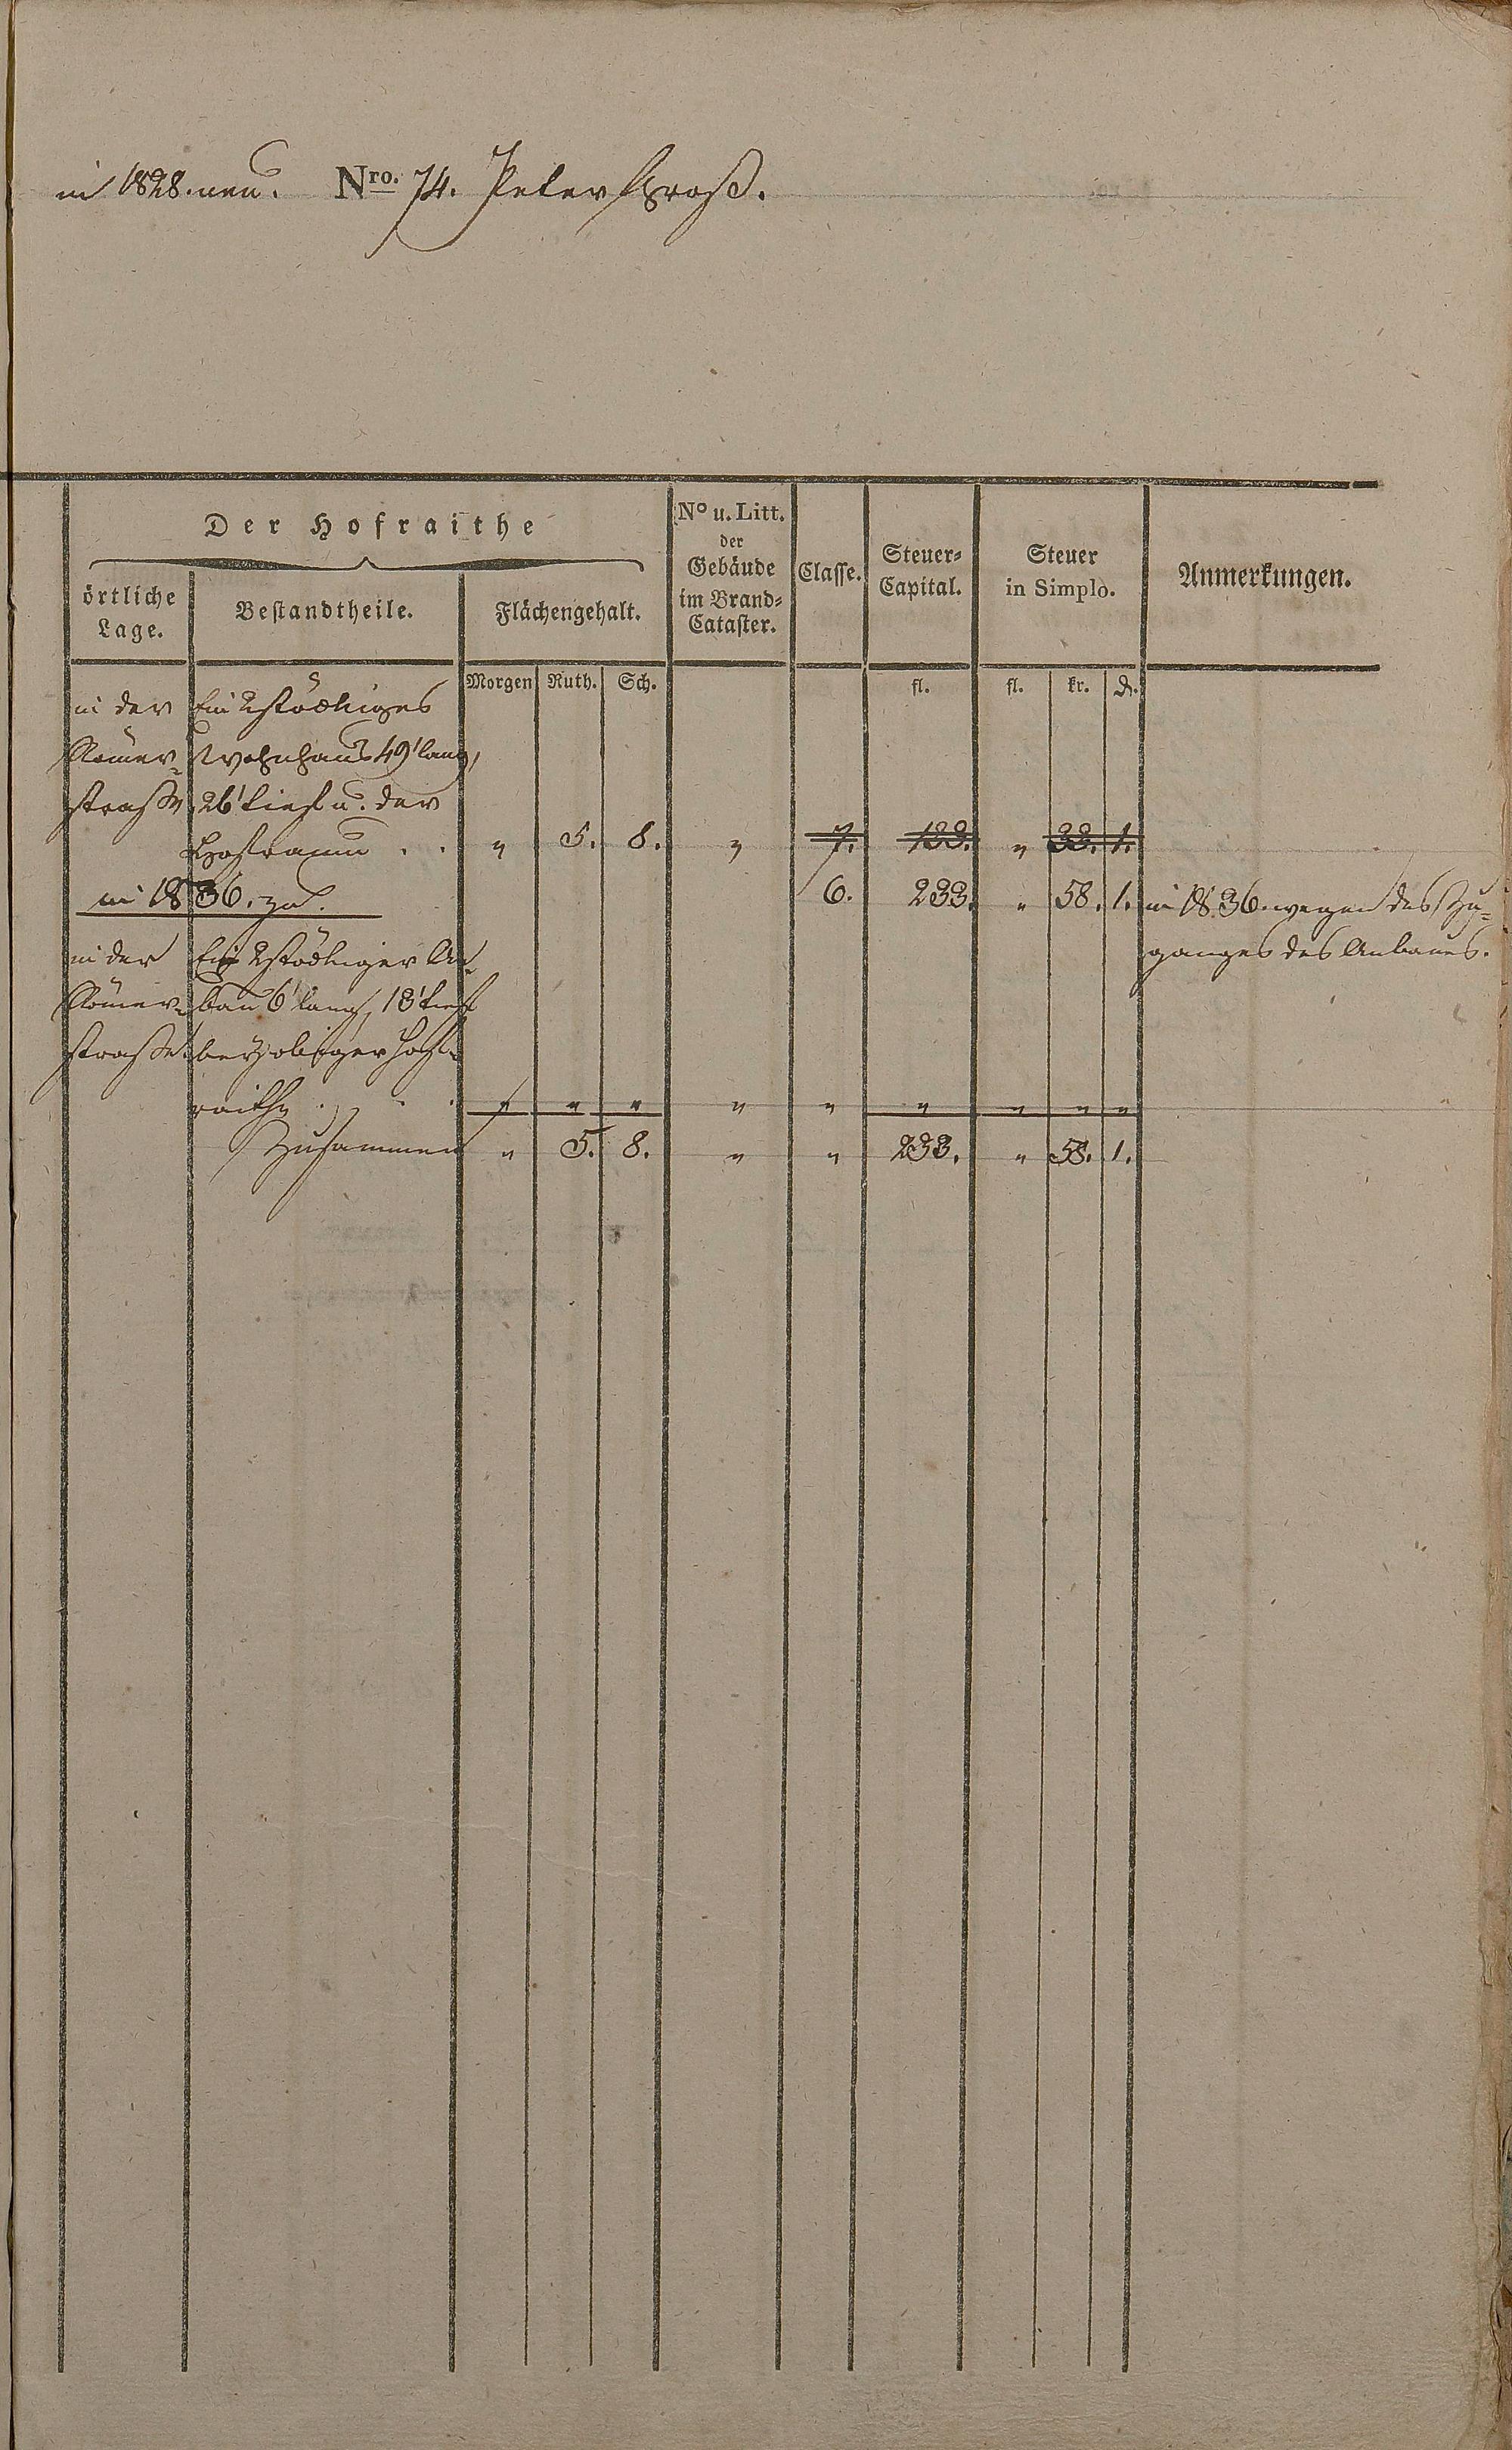 in 1828. neu. Nro. 74. Peter Groß.
Der Hofraithe
örtliche Lage.
Bestandtheile.
Flächengehalt.
No u. Litt. der Gebäude im Brand= Cataster.
Classe.
Steuer= Capital.
Steuer in Simplo.
Anmerkungen.
Morgen Ruth. Sch. fl. fl. kr. d.
in der Ein 2stöckiges
Römer= Wohnhaus 49' lang,
straße 26' tief u. der
Hofraum . . " 5. 8. " 7. 133. " 33. 1.
in 1836. zu. 6. 233. " 58. 1. in 1836. wegen des Zu=
in der Ein 2stöckiger An= ganges des Anbaues.
Römer= bau 6' lang, 18' tief
straße. bey obiger Hof=
raithe . . . " " " " " " " " "
Zusammen " 5. 8. " " 233. " 58. 1.